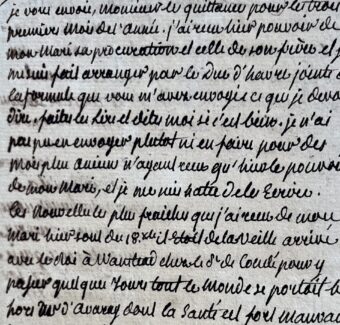 je vous envois, monsieur la quittance pour le trois
premier mois de l'année. j'ai recu hier pouvoir de
mon Mari sa procuration et celle de son frère et j
me suis fait arranger par le Duc d'havré jointe à
la formule que vous m'avez envoyés ce que je devois
dire, faites les lire et dites moi si c'est bien. je n'ai
pas pu en envoyer plutot ni en faire pour des
mois plus ancien n'ayant recus qu'hier le pouvoir
de mon Mari, et je me suis hatté de les Ecrire.
les nouvelles les plus fraiches que j'ai recus de mon
Mari hier sont du 18 il étoit de la veille arrivé
avec le Roi à Wanstead chez le Pce de Condé pour y
passer quelque Jours tout le Monde se portait bi
hors Mr d'avaray dont la Santé est fort mauvai